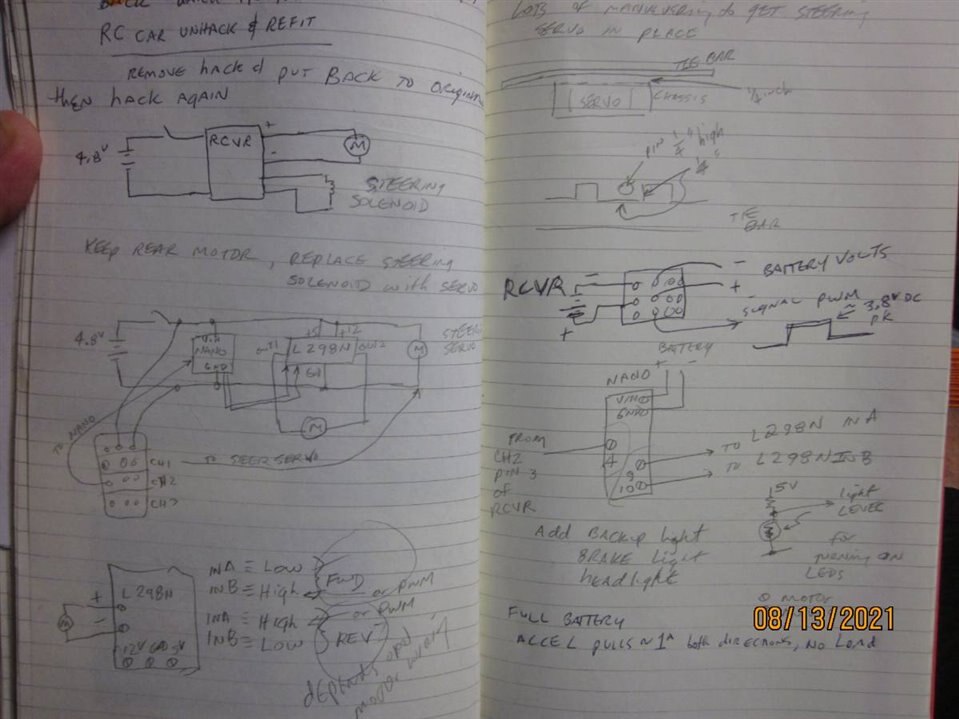 RC CAR UNHACK & REFIT
REMOVE hACK & PUT BACK TO ORIGINAL
then hACK AGAIN
RCVR
+
-
4.8V
M
STEERING
SOLENOID
KEEP REAR MOTOR, REPLACE STEERING
SOLENOID with SERVO
4.8V
NANO
GND
OUT1
+5
+12
L298N
OUT2
M
STEER
SERVO
M
TO NANO
CH1
CH2
TO STEER SERVO
L298N
+
-
M
12V GND 5V
INA = LOW
INB = High
FWD
or PWM
INA = High
INB = LOW
or PWM
REV
depends upon
motor wiring
LOTS of MANUEVERING to GET STEERING
SERVO IN PLACE
TIE BAR
SERVO
CHASSIS
1/4 inch
PIN 1/4" high
TIE
BAR
RCVR
-
+
-
+
BATTERY VOLTS
SIGNAL PWM
3.8V DC
PK
BATTERY
+ -
NANO
VIN
GND
FROM
CH2
PIN 3
of
RCVR
4
9
10
TO L298N IN A
TO L298N IN B
5V
light
LEVEL
for
turning ON
LEDS
Add BACKUP light
BRAKE light
headlight
MOTOR
FULL BATTERY
ACCEL pulls ~1A both directions, NO LOAD
08/13/2021